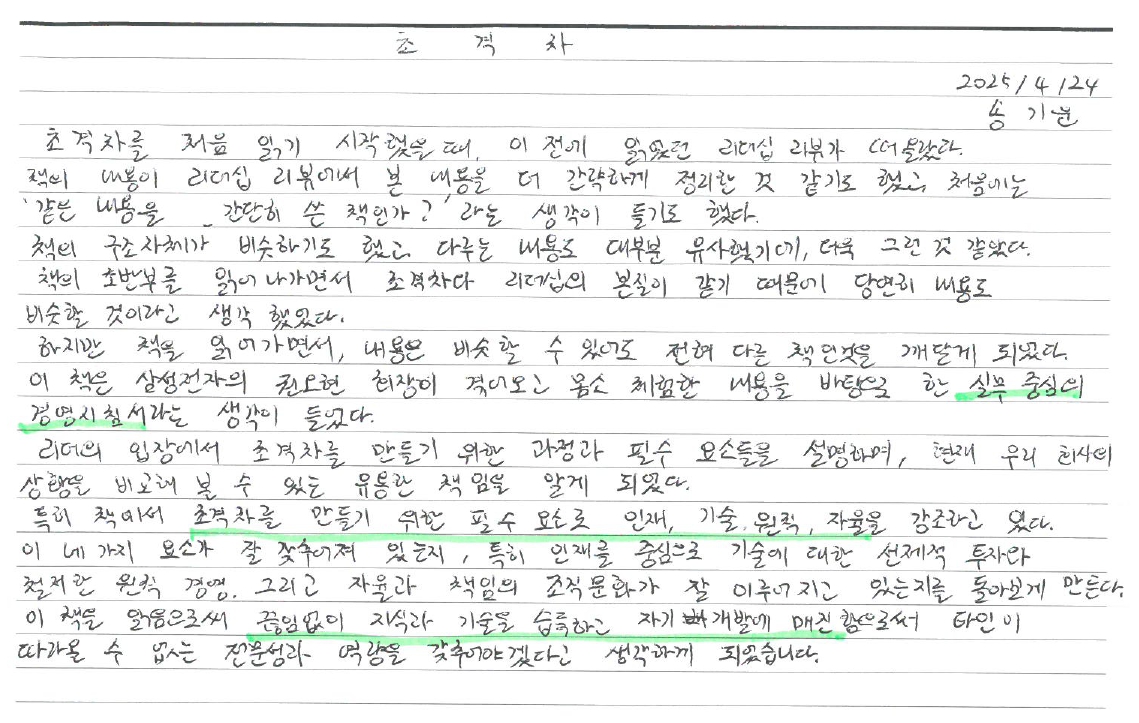 초 격 차
2025/4/24
송 기 윤
초격차를 처음 읽기 시작했을 때, 이 전에 읽었던 리더십 리뷰가 떠올랐다.
책의 내용이 리더십 리뷰에서 본 내용을 더 간략하게 정리한 것 같기도 했고, 처음에는
'같은 내용을 간단히 쓴 책인가?' 라는 생각이 들기도 했다.
책의 구조자체가 비슷하기도 했고, 다루는 내용도 대부분 유사했기에, 더욱 그런 것 같았다.
책의 초반부를 읽어 나가면서 초격차다 리더십의 본질이 같기 때문에 당연히 내용도
비슷할 것이라고 생각 했었다.
하지만 책을 읽어가면서, 내용은 비슷할 수 있어도 전혀 다른 책인것을 깨닫게 되었다.
이 책은 삼성전자의 권오현 회장이 겪어오고 몸소 체험한 내용을 바탕으로 한 실무 중심의
경영지침서라는 생각이 들었다.
리더의 입장에서 초격차를 만들기 위한 과정과 필수 요소들을 설명하며, 현재 우리 회사의
상황을 비교해 볼 수 있는 유용한 책임을 알게 되었다.
특히 책에서 초격차를 만들기 위한 필수 요소로 인재, 기술, 원칙, 자율을 강조하고 있다.
이 네가지 요소가 잘 갖추어져 있는지, 특히 인재를 중심으로 기술에 대한 선제적 투자와
철저한 원칙 경영, 그리고 자율과 책임의 조직문화가 잘 이루어지고 있는지를 돌아보게 만든다.
이 책을 읽음으로써 끊임없이 지식과 기술을 습득하고 자기 개발에 매진함으로써 타인이
따라올 수 없는 전문성과 역량을 갖추어야겠다고 생각하게 되었습니다.